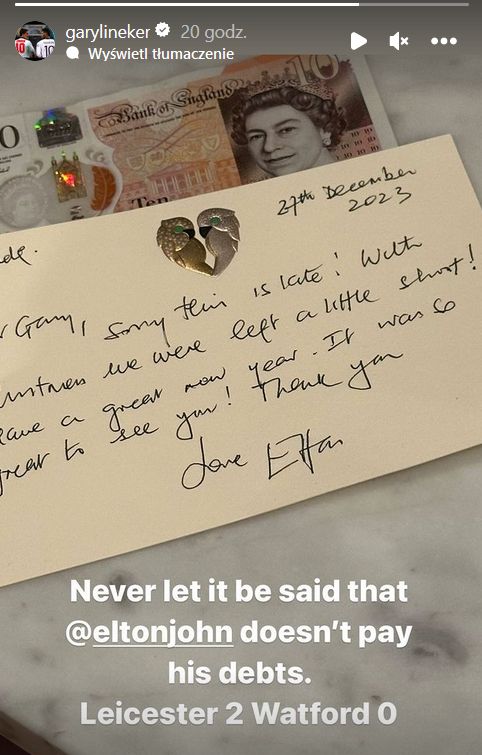 garylineker 20 godz.
Wyświetl tłumaczenie
Bank of England
Ten
27th December
2023
Gary, Sorry this is late! With
we were left a little short!
have a great new year. It was so
great to see you! Thank you
Love Elton
Never let it be said that
@eltonjohn doesn't pay
his debts.
Leicester 2 Watford 0